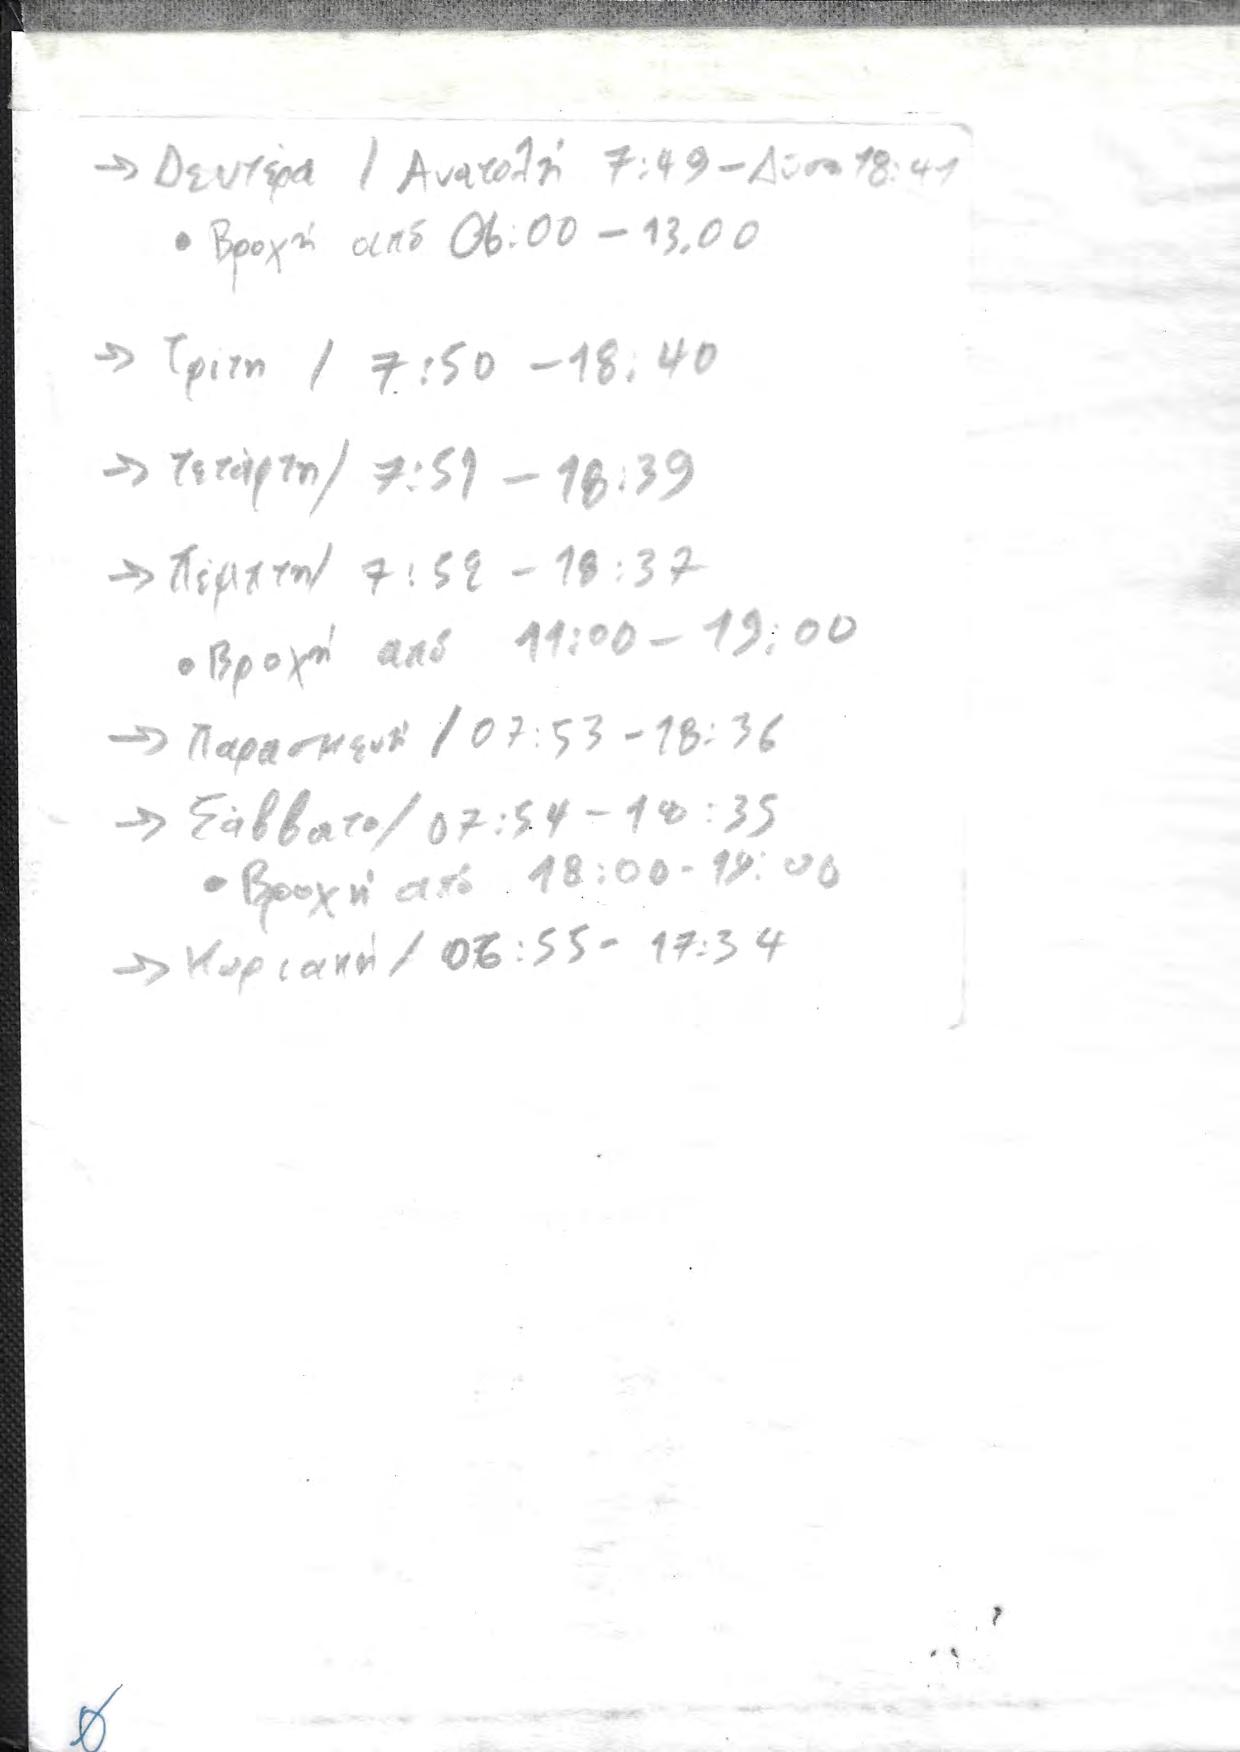 → Δευτέρα / Ανατολή 7:49 - Δύση 18:41
• Βροχή από 06:00 - 13.00
→ Τρίτη / 7:50 - 18:40
→ Τετάρτη / 7:51 - 18:39
→ Πέμπτη / 7:52 - 18:37
• Βροχή από 11:00 - 19:00
→ Παρασκευή / 07:53 - 18:36
→ Σάββατο / 07:54 - 18:35
• Βροχή από 18:00 - 19:00
→ Κυριακή / 06:55 - 17:34